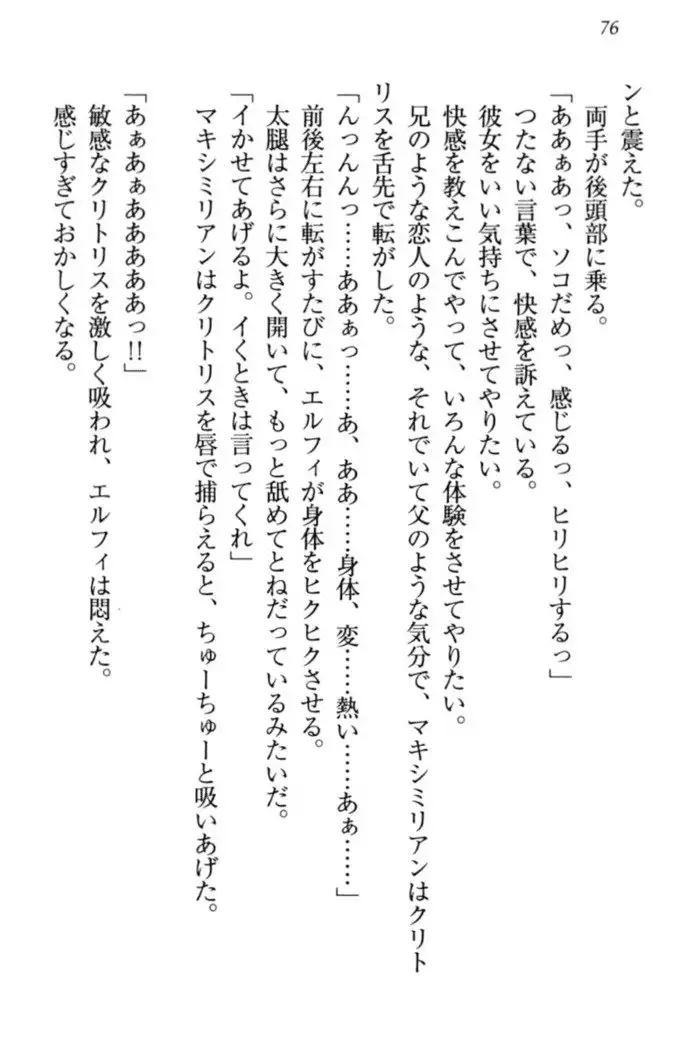 76
ンと震えた。
両手が後頭部に乗る。
「ああぁあっ、ソコだめっ、感じるっ、ヒリヒリするっ」
つたない言葉で、快感を訴えている。
彼女をいい気持ちにさせてやりたい。
快感を教えこんでやって、いろんな体験をさせてやりたい。
兄のような恋人のような、それでいて父のような気分で、マキシミリアンはクリト
リスを舌先で転がした。
「んっんんっ……ああぁっ……あ、ああ……身体、変……熱い……あぁ……」
前後左右に転がすたびに、エルフィが身体をヒクヒクさせる。
太腿はさらに大きく開いて、もっと舐めてとねだっているみたいだ。
「イかせてあげるよ。イくときは言ってくれ」
マキシミリアンはクリトリスを唇で捕らえると、ちゅーちゅーと吸いあげた。
「あぁあぁああああっ!!」
敏感なクリトリスを激しく吸われ、エルフィは悶えた。
感じすぎておかしくなる。